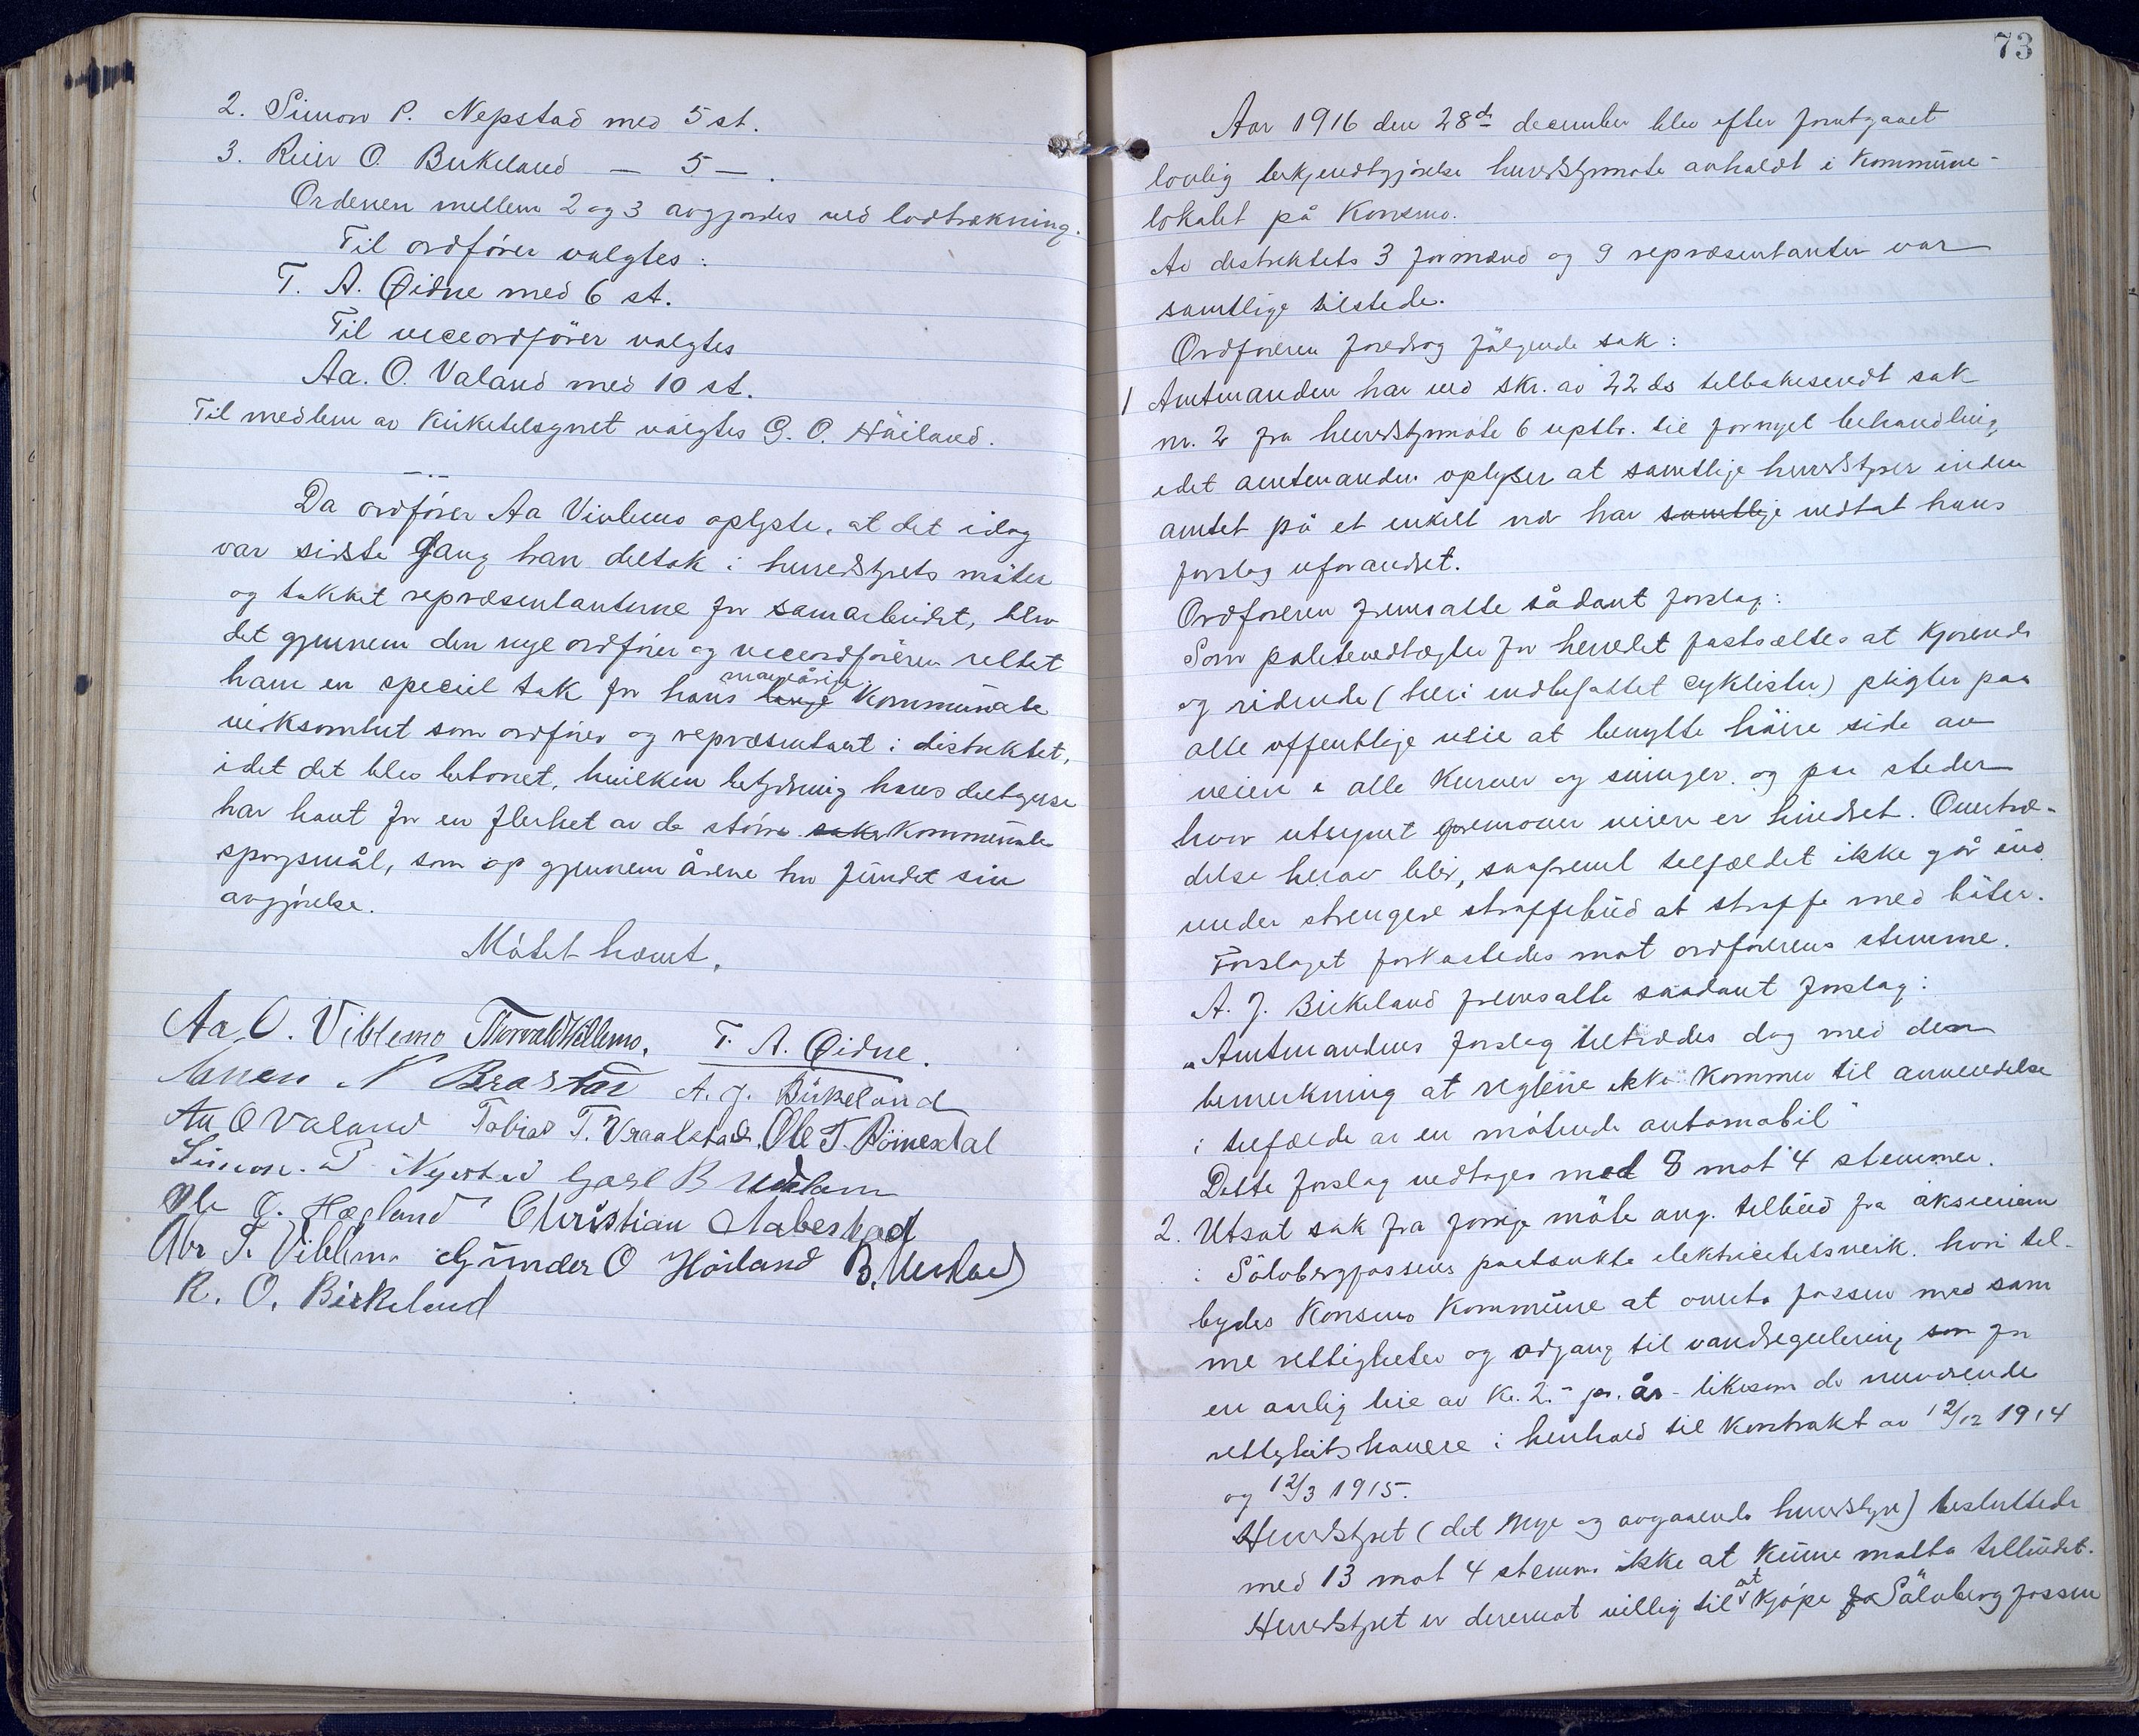 2. Simon P. Nepstad med 5 st.
3. Reier O. Birkeland — 5 — .
Ordenen mellem 2 og 3 avgjordes ved lodtrækning.
Til ordfører valgtes:
T. A. Øidne med 6 st.
Til viceordfører valgtes
Aa. O. Valand med 10 st.
Til medlem av Kirketilsynet valgtes G. O. Höiland.
Da ordfører Aa Viblemo oplyste, at det idag
var sidste gang han deltok i herredstyrets møter
og takket repræsentanterne for samarbeidet, blev
det gjennem den nye ordfører og viceordføreren rettet
ham en speciel tak for hans lange mangeårige Kommunale
virksomhet som ordfører og repræsentant i distriktet,
idet det blev betonet, hvilken betydning hans deltagelse
har havt for en flerhet av de større saker Kommunale
spørgsmål, som op gjennem årene har fundet sin
avgjørelse.
Møtet hævet.
Aa. O. Viblemo Thorvald Viblemo. T. A. Øidne.
N Brastad A. J. Birkeland
Aa O Valand Tobias T. Vraalstad. Ole T. Röinesdal
Simon. P. Nepstad Carl B
Ole O. Hægland Christian Aabestad
Abr T. Viblemo Gunder O Höiland B.
R. O. Birkeland
73
Aar 1916 den 28de december blev efter forutgaaet
lovlig bekjendtgjørelse herredstyrmøte avholdt i Kommune-
lokalet på Konsmo.
Av distriktets 3 formænd og 9 repræsentanter var
samtlige tilstede.
Ordføreren foredrog følgende sak:
1 Amtmanden har ved skr. av 22 ds tilbakesendt sak
nr. 2 fra herredstyrmøte 6 septbr. til fornyet behandling,
idet amtmanden oplyser at samtlige herredstyrer inden
amtet på et enkelt nær har samtlige vedtat hans
forslag uforandret.
Ordføreren fremsatte sådant forslag:
Som politivedtægter for herredet fastsættes at Kjørende
og ridende (heri indbefattet cyklister) pligter paa
alle offentlige veie at benytte høire side av
veien i alle Kurver og svinger og paa steder
hvor utsynet fremover veien er hindret. Overtræ-
delse herav blir, saafremt tilfældet ikke går ind
under strengere straffebud at straffe med bøter.
Forslaget forkastedes mot ordførerens stemme.
A. J. Birkeland fremsatte saadant forslag:
"Amtmandens forslag tiltrædes dog med den
bemerkning at reglene ikke kommer til anvendelse
i tilfælde av en møtende automobil"
Dette forslag vedtages med 8 mot 4 stemmer.
2. Utsat sak fra forrige møte ang. tilbud fra aksieiere
i Sölvbergfossens påtænkte elektricitetsverk. hvori til-
bydes Konsmo Kommune at overta fossen med sam
me rettigheter og adgang til vandregulering som for
en aarlig leie av Kr. 2.- pr. år - likesom de nuværende
rettighetshavere i henhold til Kontrakt av 12/12 1914
og 12/3 1915.
Herredstyret (det nye og avgaaende herredstyre) besluttede
med 13 mot 4 stemmer ikke at Kunne motta tilbudet.
Herredstyret er derimot villig til at Kjøpe fo Sölvbergfossen